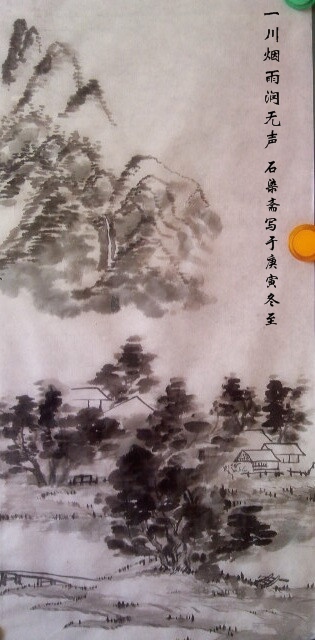 一川烟雨润无声 石染斋写于庚寅冬至